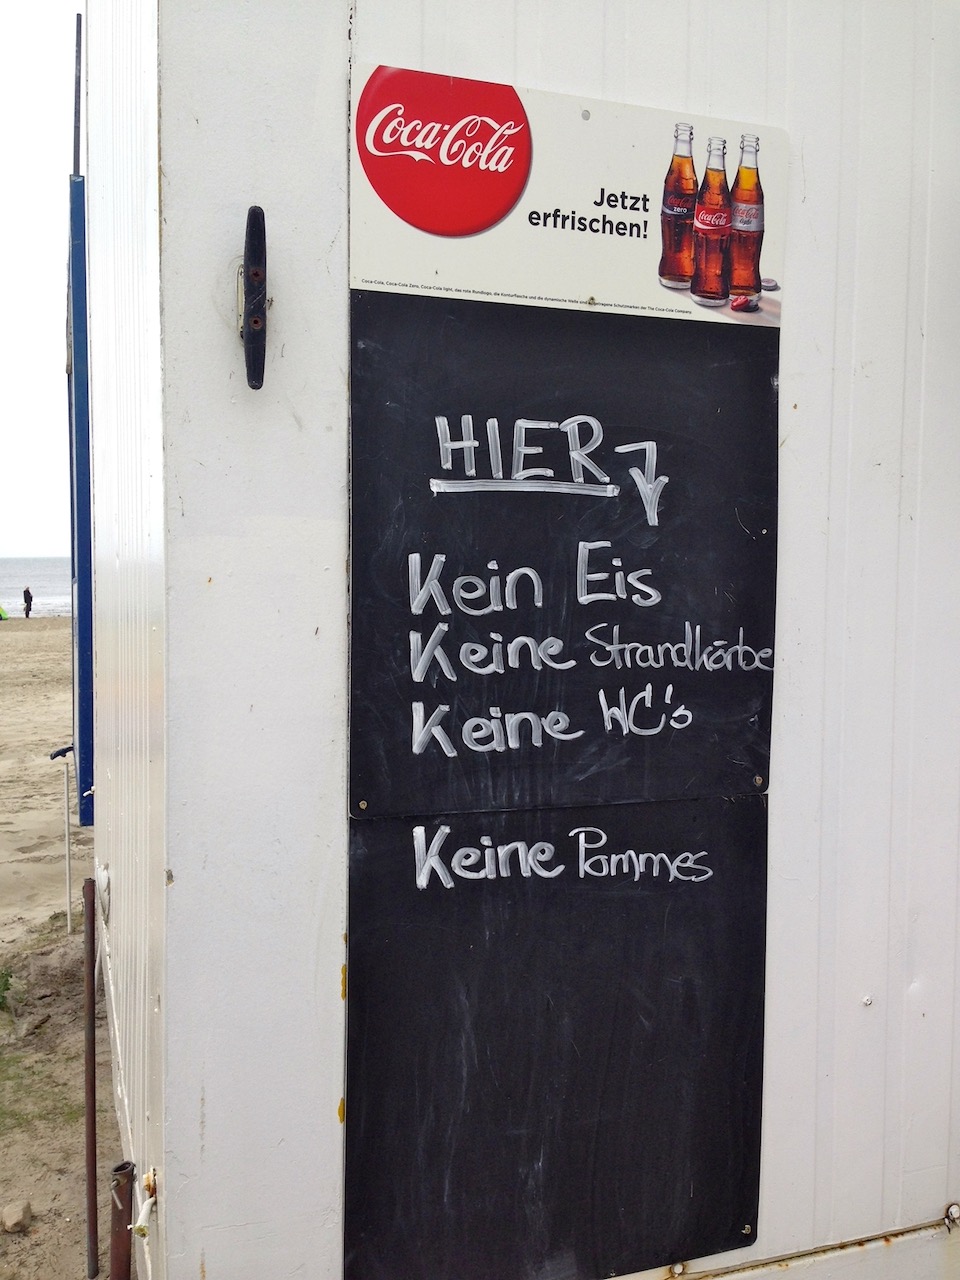 Coca-Cola
Jetzt
erfrischen!
zero
Coca-Cola
light
Coca-Cola, Coca-Cola Zero, Coca-Cola light, das rote Rundlogo, die Konturflasche und die dynamische Welle sind eingetragene Schutzmarken der The Coca-Cola Company
HIER
Kein Eis
Keine Strandkörbe
Keine WC's
Keine Pommes